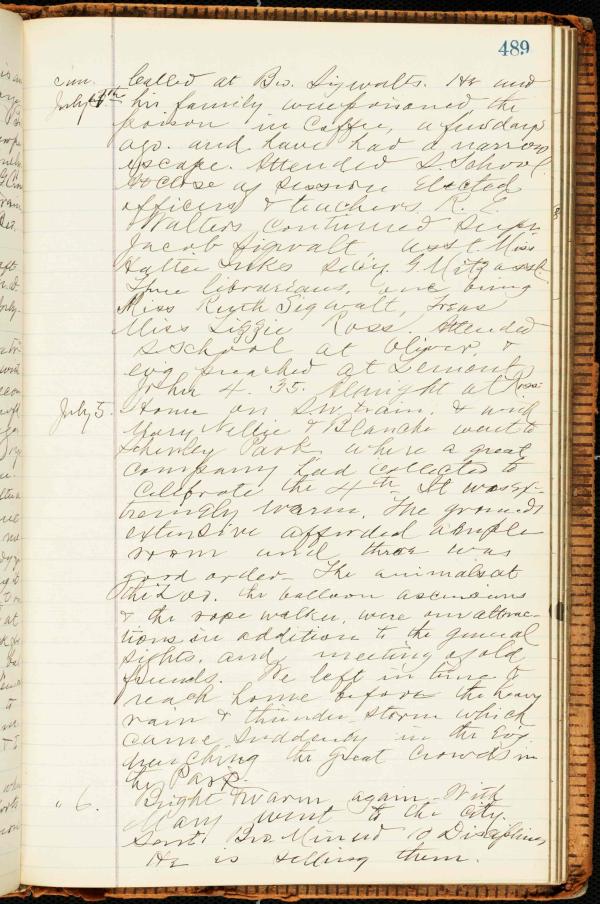 489
Sun. Called at Bro. Sigwalts. He and
July 4th his family were poisoned the
poison in Coffee, a few days
ago. and have had a narrow
escape. Attended S School.
At close of session Elected
officers & teachers. R. E.
Walters continued Supr.
Jacob Sigwalt asst Miss
Hattie Inkes Secy. G. Mitz asst.
Three librarians, one being
Miss Ruth Sigwalt, Treas
Miss Lizzie Ross. Attended
S School at Oliver, &
evg preached at Lemont
John 4. 35. All night at Ross:
July 5. Home on train. & with
Mary Nellie & Blanche went to
Schenley Park where a great
company had collected to
Celebrate the 4th It was ex-
tremely warm. The grounds
extensive afforded ample
room and there was
good order - The animals at
the Zoo. the balloon ascensions
& the rope walker, were our attrac-
tions in addition to the general
sights. and meeting of old
friends. We left in time to
reach home before the heavy
rain & thunder storm which
came suddenly in the Evg.
the great Crowds in
the Park.
" 6. Bright & warm again. With
Mary went to the City.
Sent Bro Minud 10 Disciplines
He is selling them.